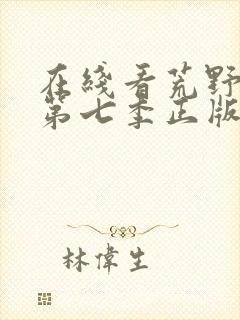 在綫看荒野
第七季正版
林偉生